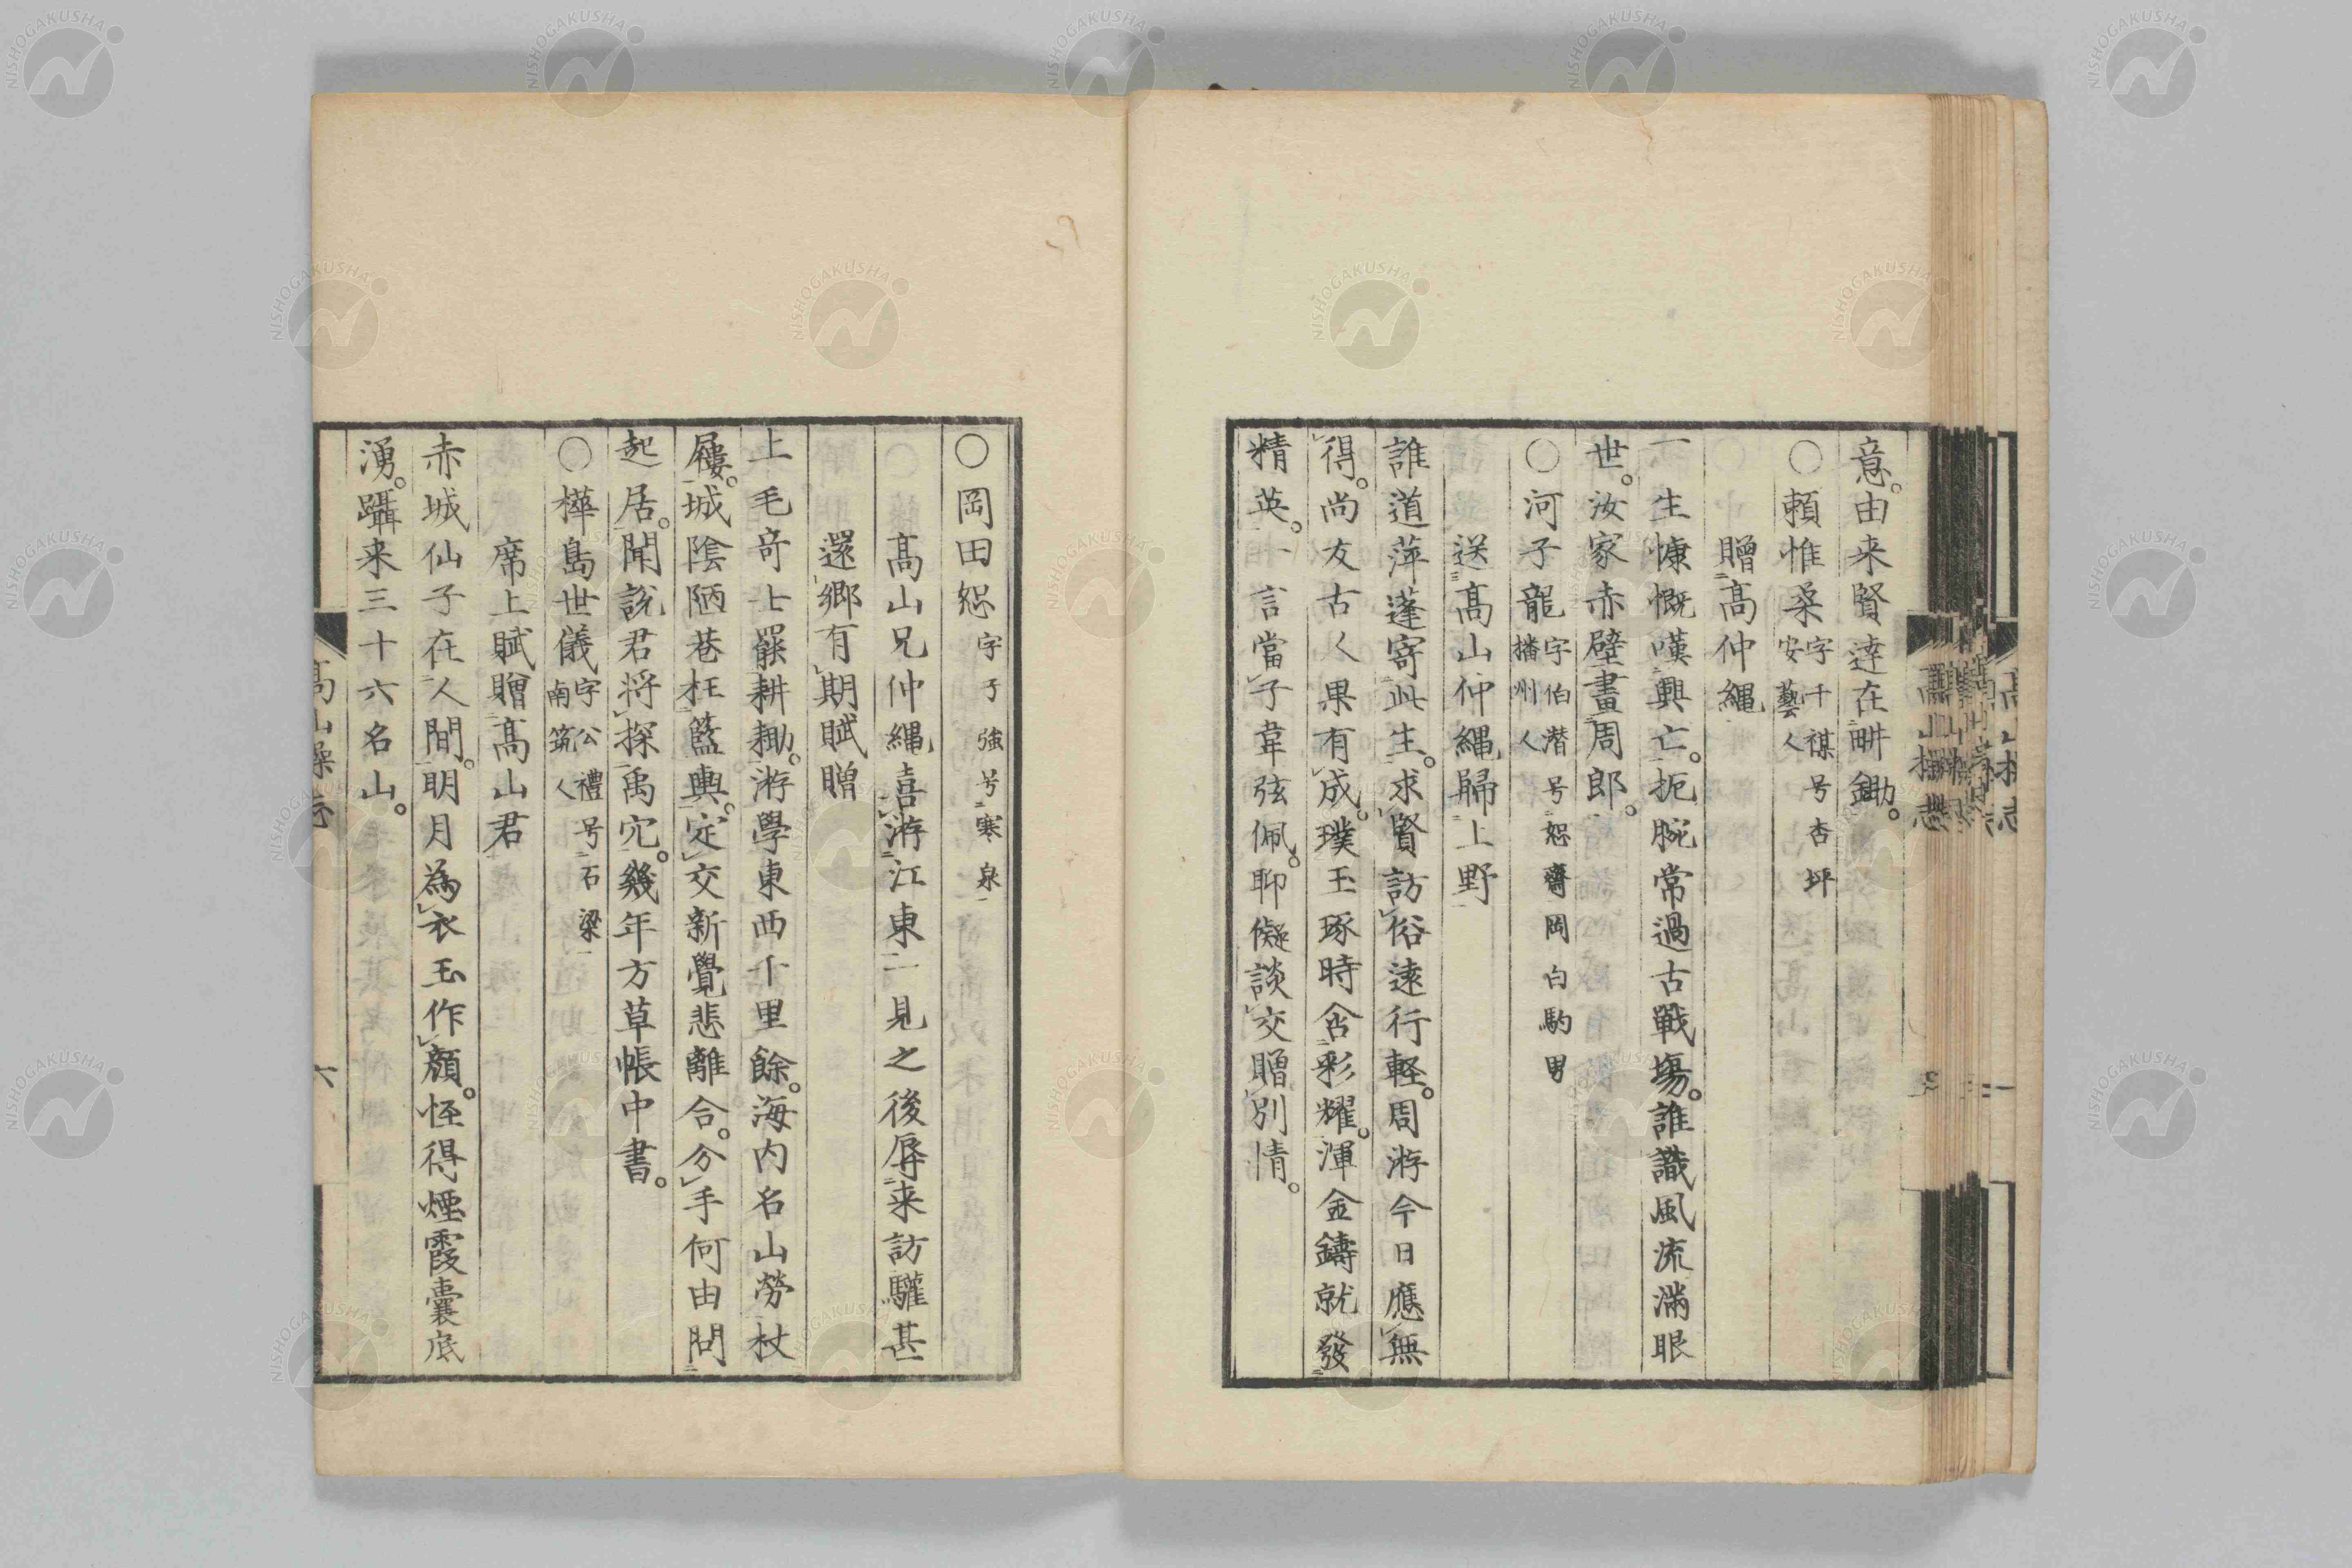 意。由来賢達在畊鋤。
○頼惟柔字千祺号杏坪安藝人
贈高仲縄
一生慷慨嘆興亡。扼腕常過古戦場。誰識風流滿眼
世。汝家赤壁畫周郎。
○河子龍字伯潜号恕齋岡白駒男播州人
送高山仲縄歸上野
誰道萍蓬寄此生。求賢訪俗遠行軽。周游今日應無
得。尚友古人果有成。璞玉琢時含彩耀。渾金鑄就發
精英。一言當子韋弦佩。聊儗談交贈別情。
○岡田恕字子強号寒泉
高山兄仲縄喜游江東一見之後辱来訪驩甚
還郷有期賦贈
上毛竒士罷耕耡。游學東西千里餘。海内名山勞杖
屨。城陰陋巷枉籃輿。定交新覺悲離合。分手何由問
起居。聞説君将探禹穴。幾年方草帳中書。
○樺島世儀字公禮号石梁南筑人
席上賦贈高山君
赤城仙子在人間。明月為衣玉作顔。恠得煙霞囊底
湧。躡来三十六名山。
六
NISHOGAKUSHA